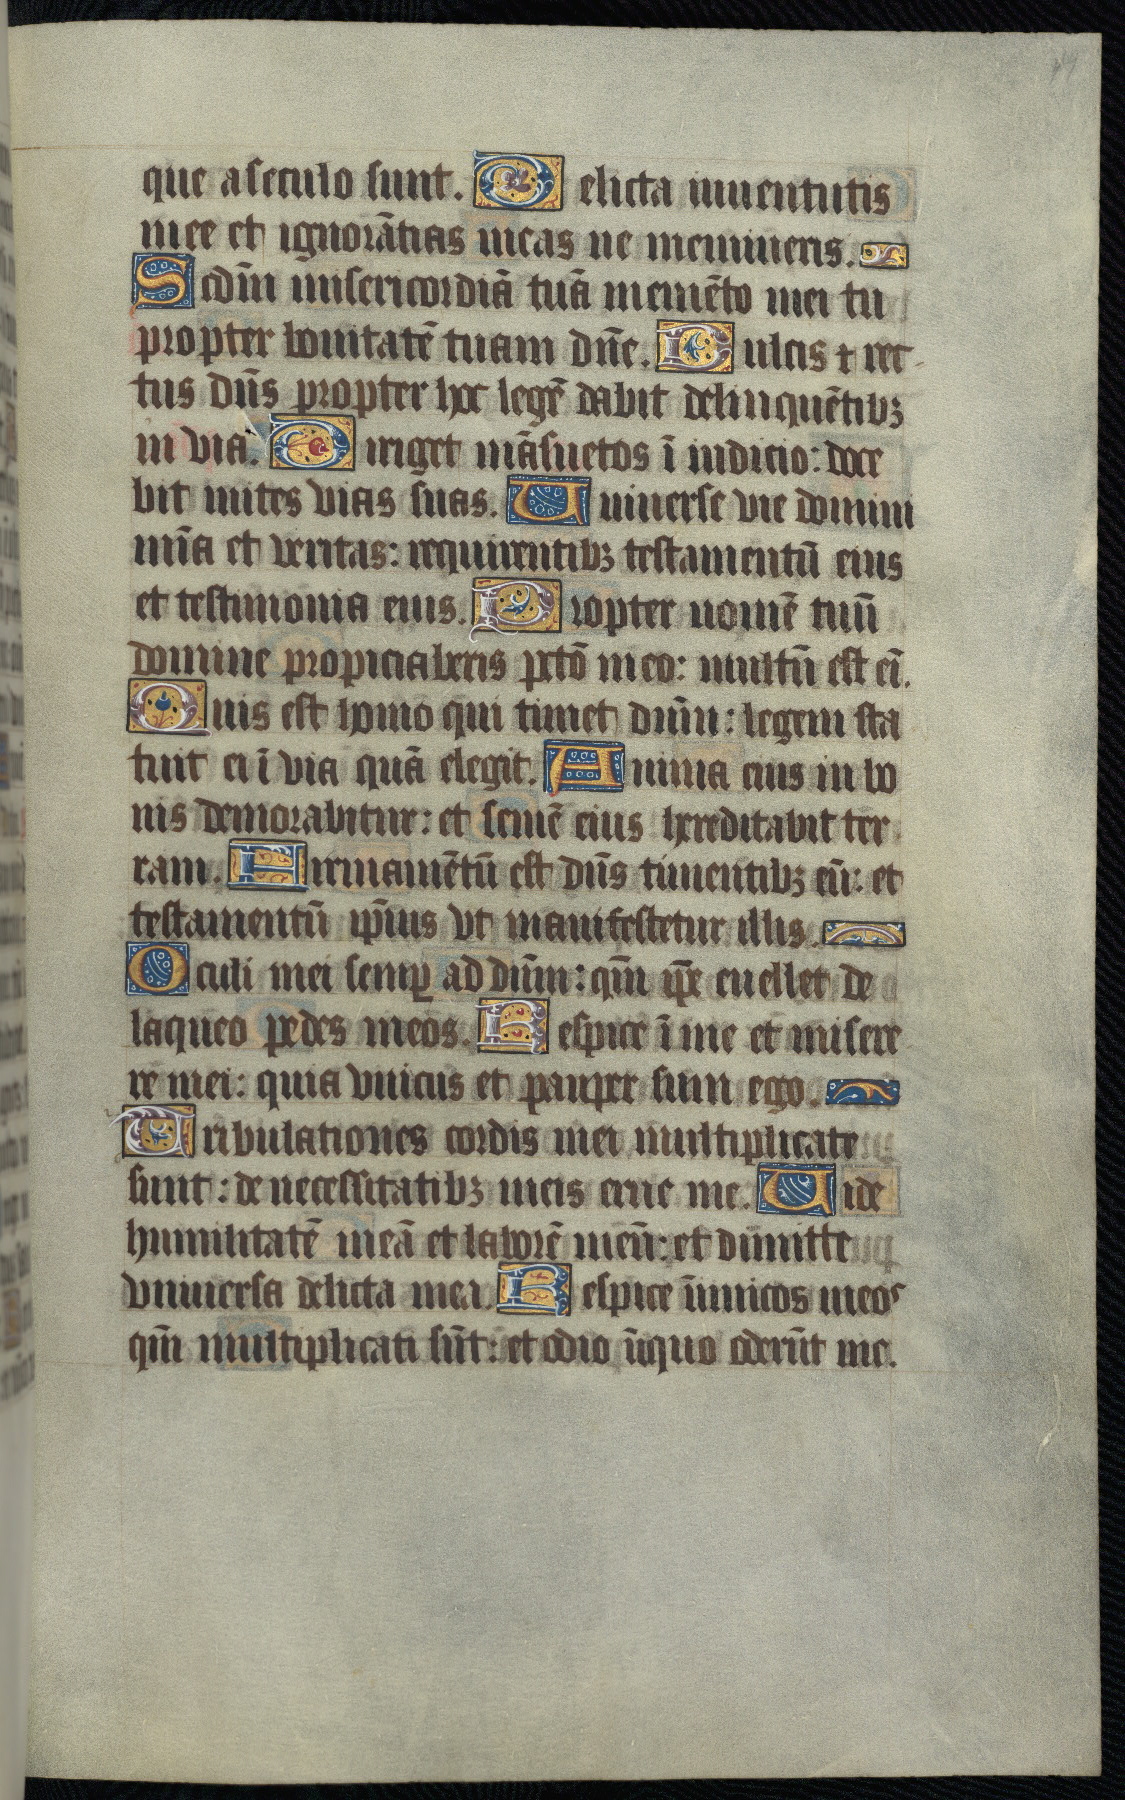 que a seculo sunt. Delicta iuuentutis
mee et ignorãtias meas ne memineris.
Scdm̄ misericordiã tuã memẽto mei tu
propter bonitatẽ tuam dñe. Dulcis ⁊ rec
tus dñs propter hoc legẽ dabit delinquẽtibꝫ
in via. Diriget mãsuetos ĩ iudicio: doce
bit mites vias suas. Uniuerse vie domini
mĩa et veritas: requirentibꝫ testamentũ eius
et testimonia eius. Propter nomẽ tuũ
domine propiciaberis pctõ meo: multũ est eĩ.
Quis est homo qui timet dñm: legem sta
tuit ei ĩ via quã elegit. Anima eius in bo
nis demorabitur: et semẽ eius hereditabit ter
ram. Firmamẽtũ est dñs timentibꝫ eũ: et
testamentũ ip̃ius vt manifestetur illis.
Oculi mei semꝑ ad dñm: qm̃ ip̃e euellet de
laqueo pedes meos. Respice ĩ me et misere
re mei: quia vnicus et pauper sum ego.
Tribulationes cordis mei multiplicate
sunt: de necessitatibꝫ meis erue me. Uide
humilitatẽ meã et laborẽ meũ: et dimitte
vniuersa delicta mea. Respice ĩimicos meos
qm̃ multiplicati sũt: et odio ĩiquo oderũt me.